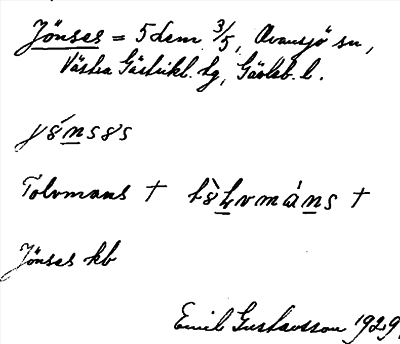 Jönses = 5dem 3/5, Ovansjö sn,
Västra Gästrikl. tg, Gävleb. l.
jö́nsəs
Tolvmans † tə̀lvmáns †
Jönses kb
Emil Gustavsson 1929.